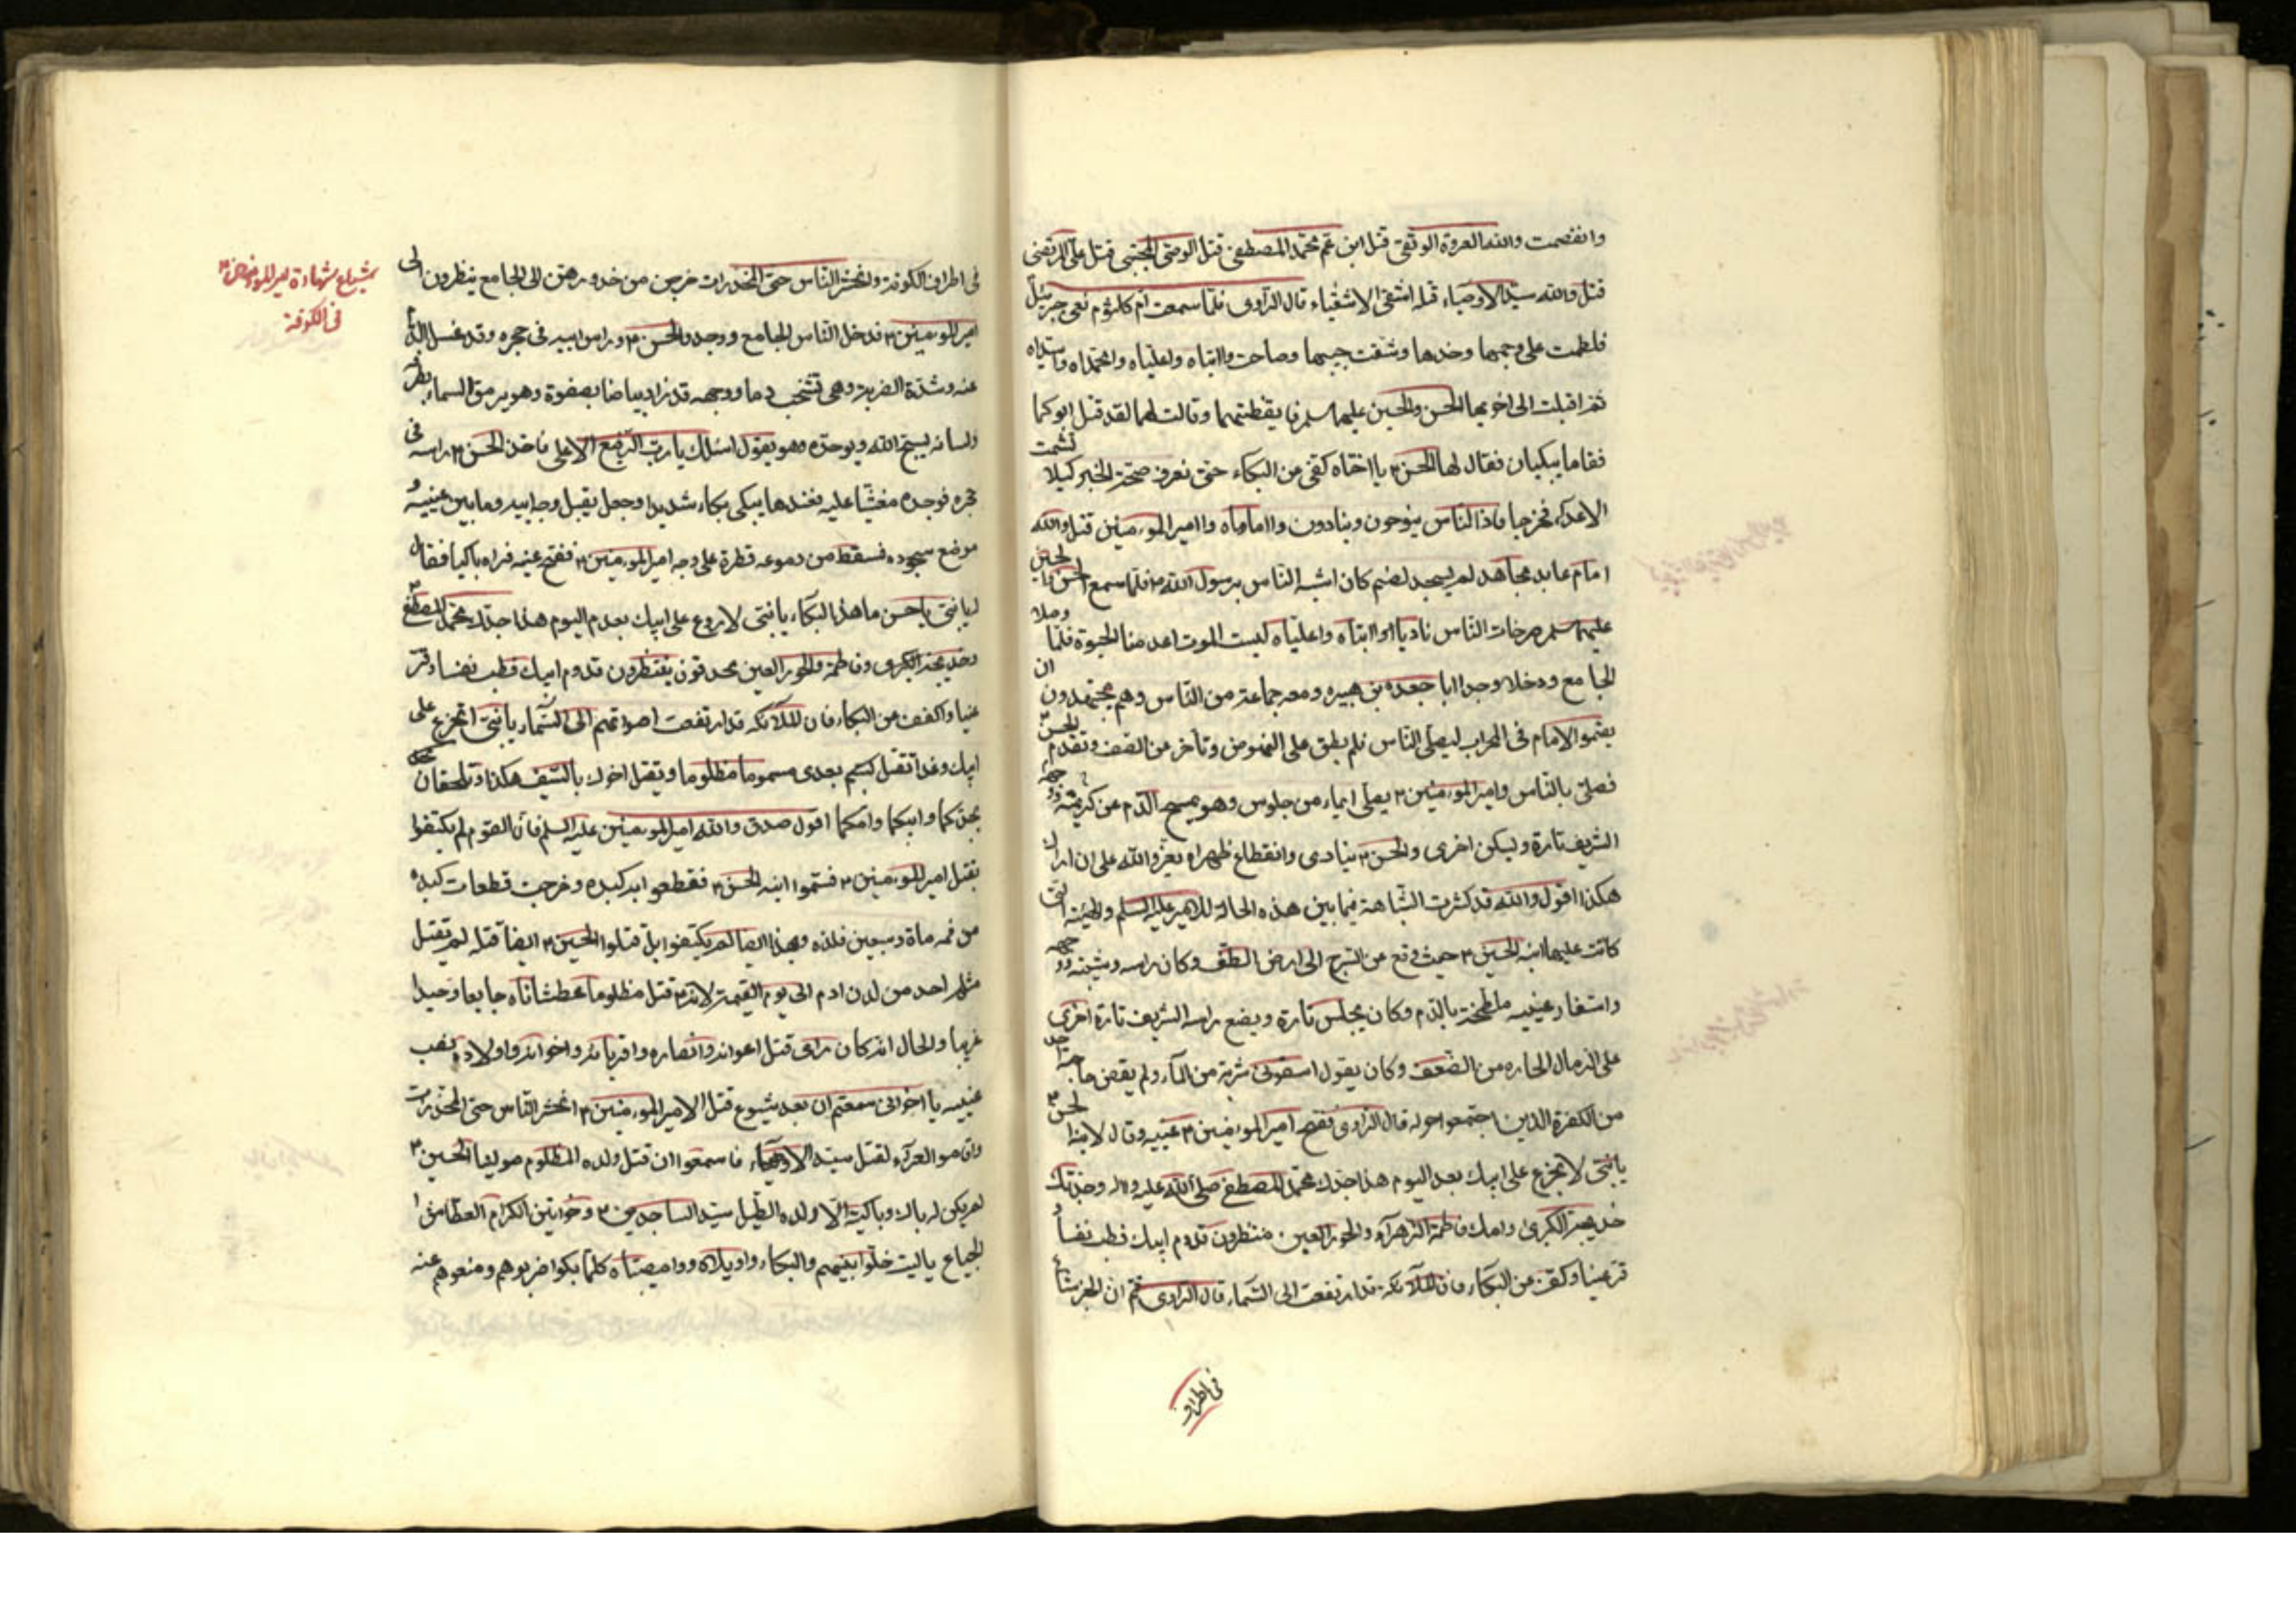 وانفصمت والله العروة الوثقى قتل ابن عم محمد المصطفى قتل الوصى المجتبى قتل على المرتضى
قتل والله سيد الاوصياء قتله اشقى الاشقياء قال الراوى فلما سمعت ام كلثوم نعى جبرئيل
فلطمت على وجهها وخدها وشقت جيبها وصاحت واابتاه واعلياه وامحمداه واسيداه
ثم اقبلت الى اخويها الحسن والحسين عليهما سلم فايقظتهما وقالت لهما لقد قتل ابوكما
فقاما يبكيان فقال لها الحسن ع يا اختاه كفى من البكاء حتى نعرف صحة الخبر كيلا تشمت
الاعداء فخرجا فاذا الناس ينوحون وينادون وااماماه واامير المومنين قتل والله
امام عابد مجاهد لم يسجد لصنم كان اشبه الناس برسول الله ص فلما سمع الحسن والحسين
عليهما سلم صرخات الناس ناديا واابتاه واعلياه ليت الموت اعدمنا الحيوة فلما وصلا
الجامع ودخلا وجدا ابا جعده بن هبيره ومعه جماعة من الناس وهم يجتهدون ان
يقيموا الامام فى المحراب ليصلى الناس فلم يطق على النهوض وتأخر عن الصف وتقدم الحسن ع
فصلى بالناس وامير المومنين ع يصلى ايماء من جلوس وهو يمسح الدم عن كريمته ووجهه
الشريف تارة ويسكن اخرى والحسن ع ينادى وانقطاع ظهراه يعز والله على ان اراك
هكذا اقول والله قد كثرت الشباهة فيما بين هذه الحالة للامير عليه السلم والهيئة التى
كانت عليها ابنه الحسين ع حيث وقع عن السرج الى ارض الطف وكان راسه وشيبته ووجهه
واشفار عينيه ملطخة بالدم وكان يجلس تارة ويضع راسه الشريف تارة اخرى
على الرمال الحاره من الضعف وكان يقول اسقونى شربة من الماء ولم يقض حاجته احد
من الكفرة الذين اجتمعوا حوله قال الراوى ففتح امير المومنين ع عينيه وقال لابنه الحسن ع
يا بنى لا تجزع على ابيك بعد اليوم هذا جدك محمد المصطفى صلى الله عليه واله وجدتك
خديجة الكبرى وامك فاطمة الزهراء والحور العين منتظرون قدوم ابيك فطب نفسا و
قر عينا وكف عن البكاء فان الملائكة قد ارتفعت الى السماء قال الراوى ثم ان الخبر شاع
فى اطراف
فى اطراف الكوفة وانحشر الناس حتى المخدرات خرجن من خدورهن الى الجامع ينظرون الى
امير المومنين ع فدخل الناس الجامع ووجدوا الحسن ع وراس ابيه فى حجره وقد غسل الدم
عنه وشدة الضربة وهى تشخب دما ووجهه قد زاد بياضا بصفرة وهو يرمق السماء بطرفه
ولسانه يسبح الله ويوحده وهو يقول اسئلك يا رب الرفيع الاعلى فاخذ الحسن ع راسه فى
حجره فوجده مغشيا عليه فعندها يبكى بكاء شديدا وجعل يقبل وجه ابيه وما بين عينيه و
موضع سجوده فسقط من دموعه قطرة على وجه امير المومنين ع ففتح عينه فراه باكيا فقال
له يا بنى يا حسن ما هذا البكاء يا بنى لا روع على ابيك بعد اليوم هذا جدك محمد المصطفى ص
وخديجة الكبرى وفاطمة والحور العين محدقون ينتظرون قدوم ابيك فطب نفسا وقر
عينا واكفف عن البكاء فان الملائكة قد ارتفعت اصواتهم الى السماء يا بنى اتجزع على
ابيك وغدا تقتل بعدى مسموما مظلوما ويقتل اخوك بالسيف هكذا وتلحقان
بجدكما وابيكما وامكما اقول صدق والله امير المومنين عليه السلم فان القوم لم يكتفوا
بقتل امير المومنين ع فسموا ابنه الحسن ع فقطعوا كبده وخرجت قطعات كبده
من فمه ماة وسبعين فلذه وبهذا ايضا لم يكتفوا بل قتلوا الحسين ع ايضا قتلة لم يقتل
مثله احد من لدن ادم الى يوم القيمة لانه ع قتل مظلوما عطشانا جايعا وحيدا
غريبا والحال انه كان راى قتل اعوانه وانصاره واقربائه واخوانه واولاده نصب
عينيه يا اخوانى سمعتم ان بعد شيوع قتل الامير المومنين ع انحشر الناس حتى المخدرات
واقاموا العزاء لقتل سيد الاوصياء فاسمعوا ان قتل ولده المظلوم مولينا الحسين ع
لم يكن له باك وباكية الا ولده العليل سيد الساجدين ع وخواتين الكرام العطاش
الجياع يا ليت خلوا بينهم والبكاء واويلاه ووامصيبتاه كلما بكوا ضربوهم ومنعوهم عنه
شياع شهادة امير المومنين ع
فى الكوفة